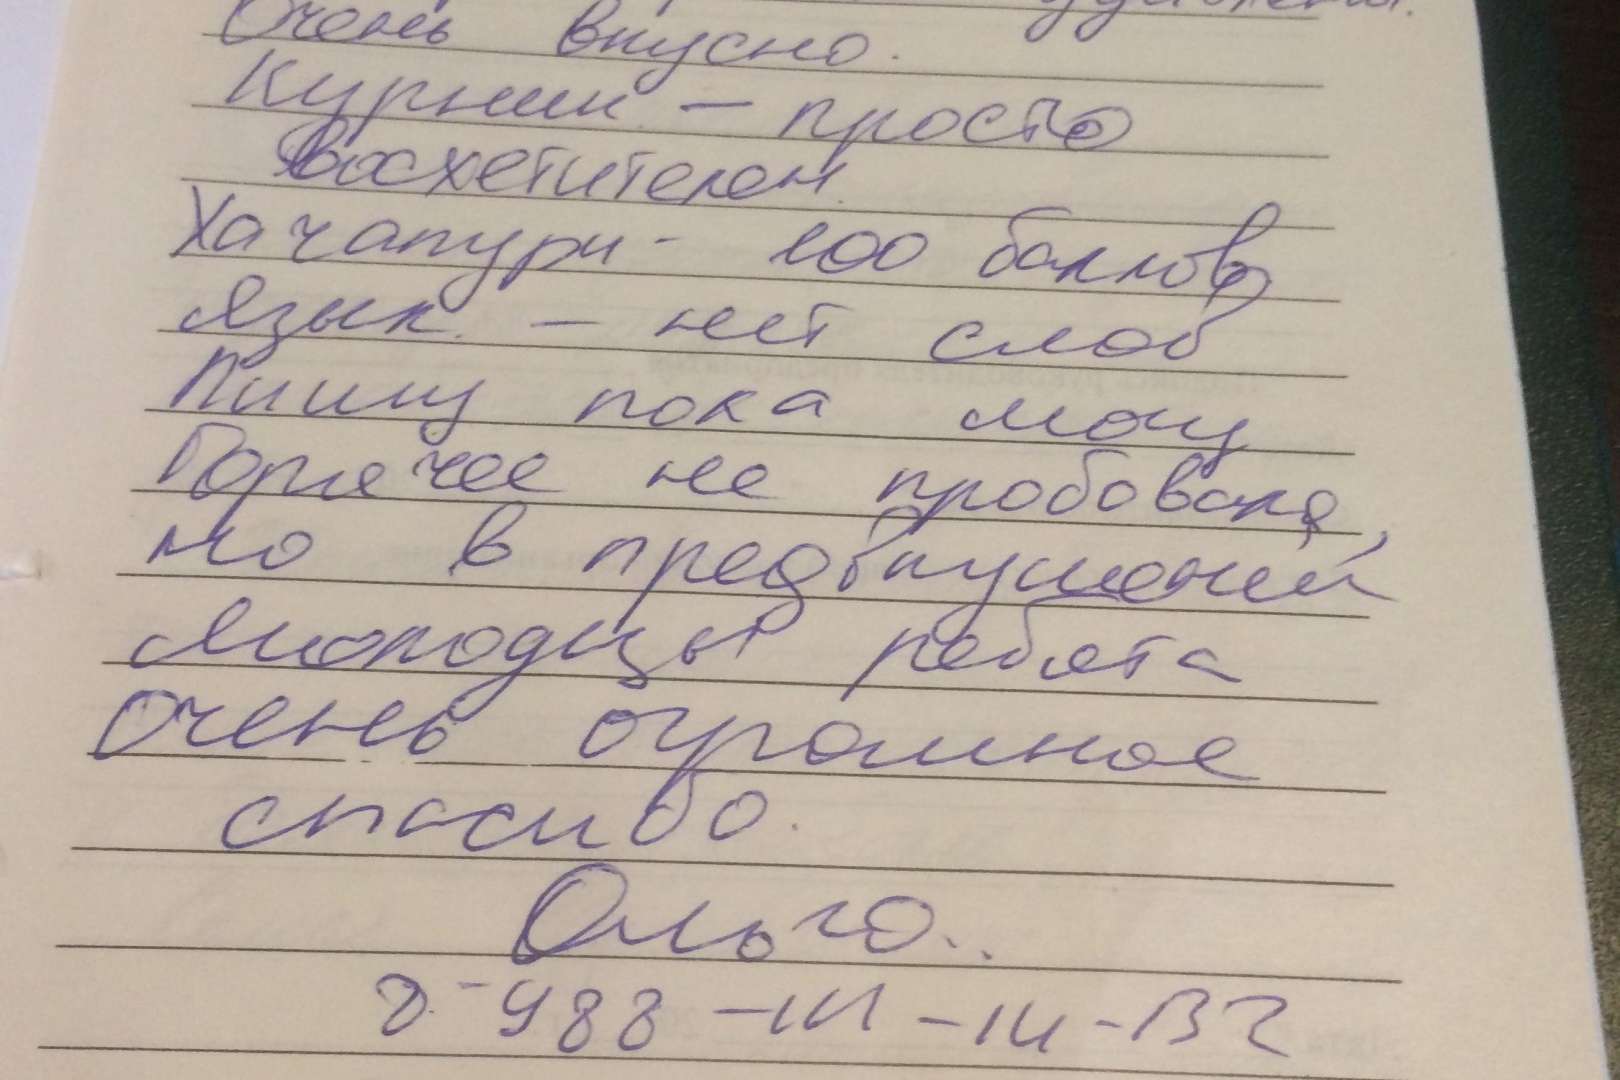 Очень вкусно.
Курник - просто
восхетителен.
Хачапури - 100 баллов
Язык - нет слов
Пишу пока могу
Горячее не пробовала,
но в предвкушений
Молодцы ребята
Очень огромное
спасибо.
Ольга..
8-988-